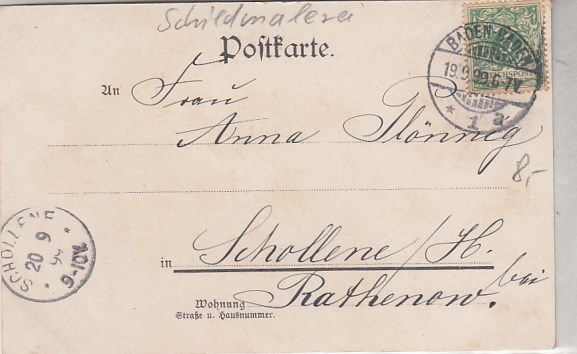 Schildmalerei
Postkarte.
BADEN-BADEN
19.9.99.6-7V.
* 1 a
An Frau
Anna Plönnig
8,-
SCHOLLENE
20 9
99
9-10V.
Schollene/H.
in
bei
Rathenow.
Wohnung
Straße u. Hausnummer.